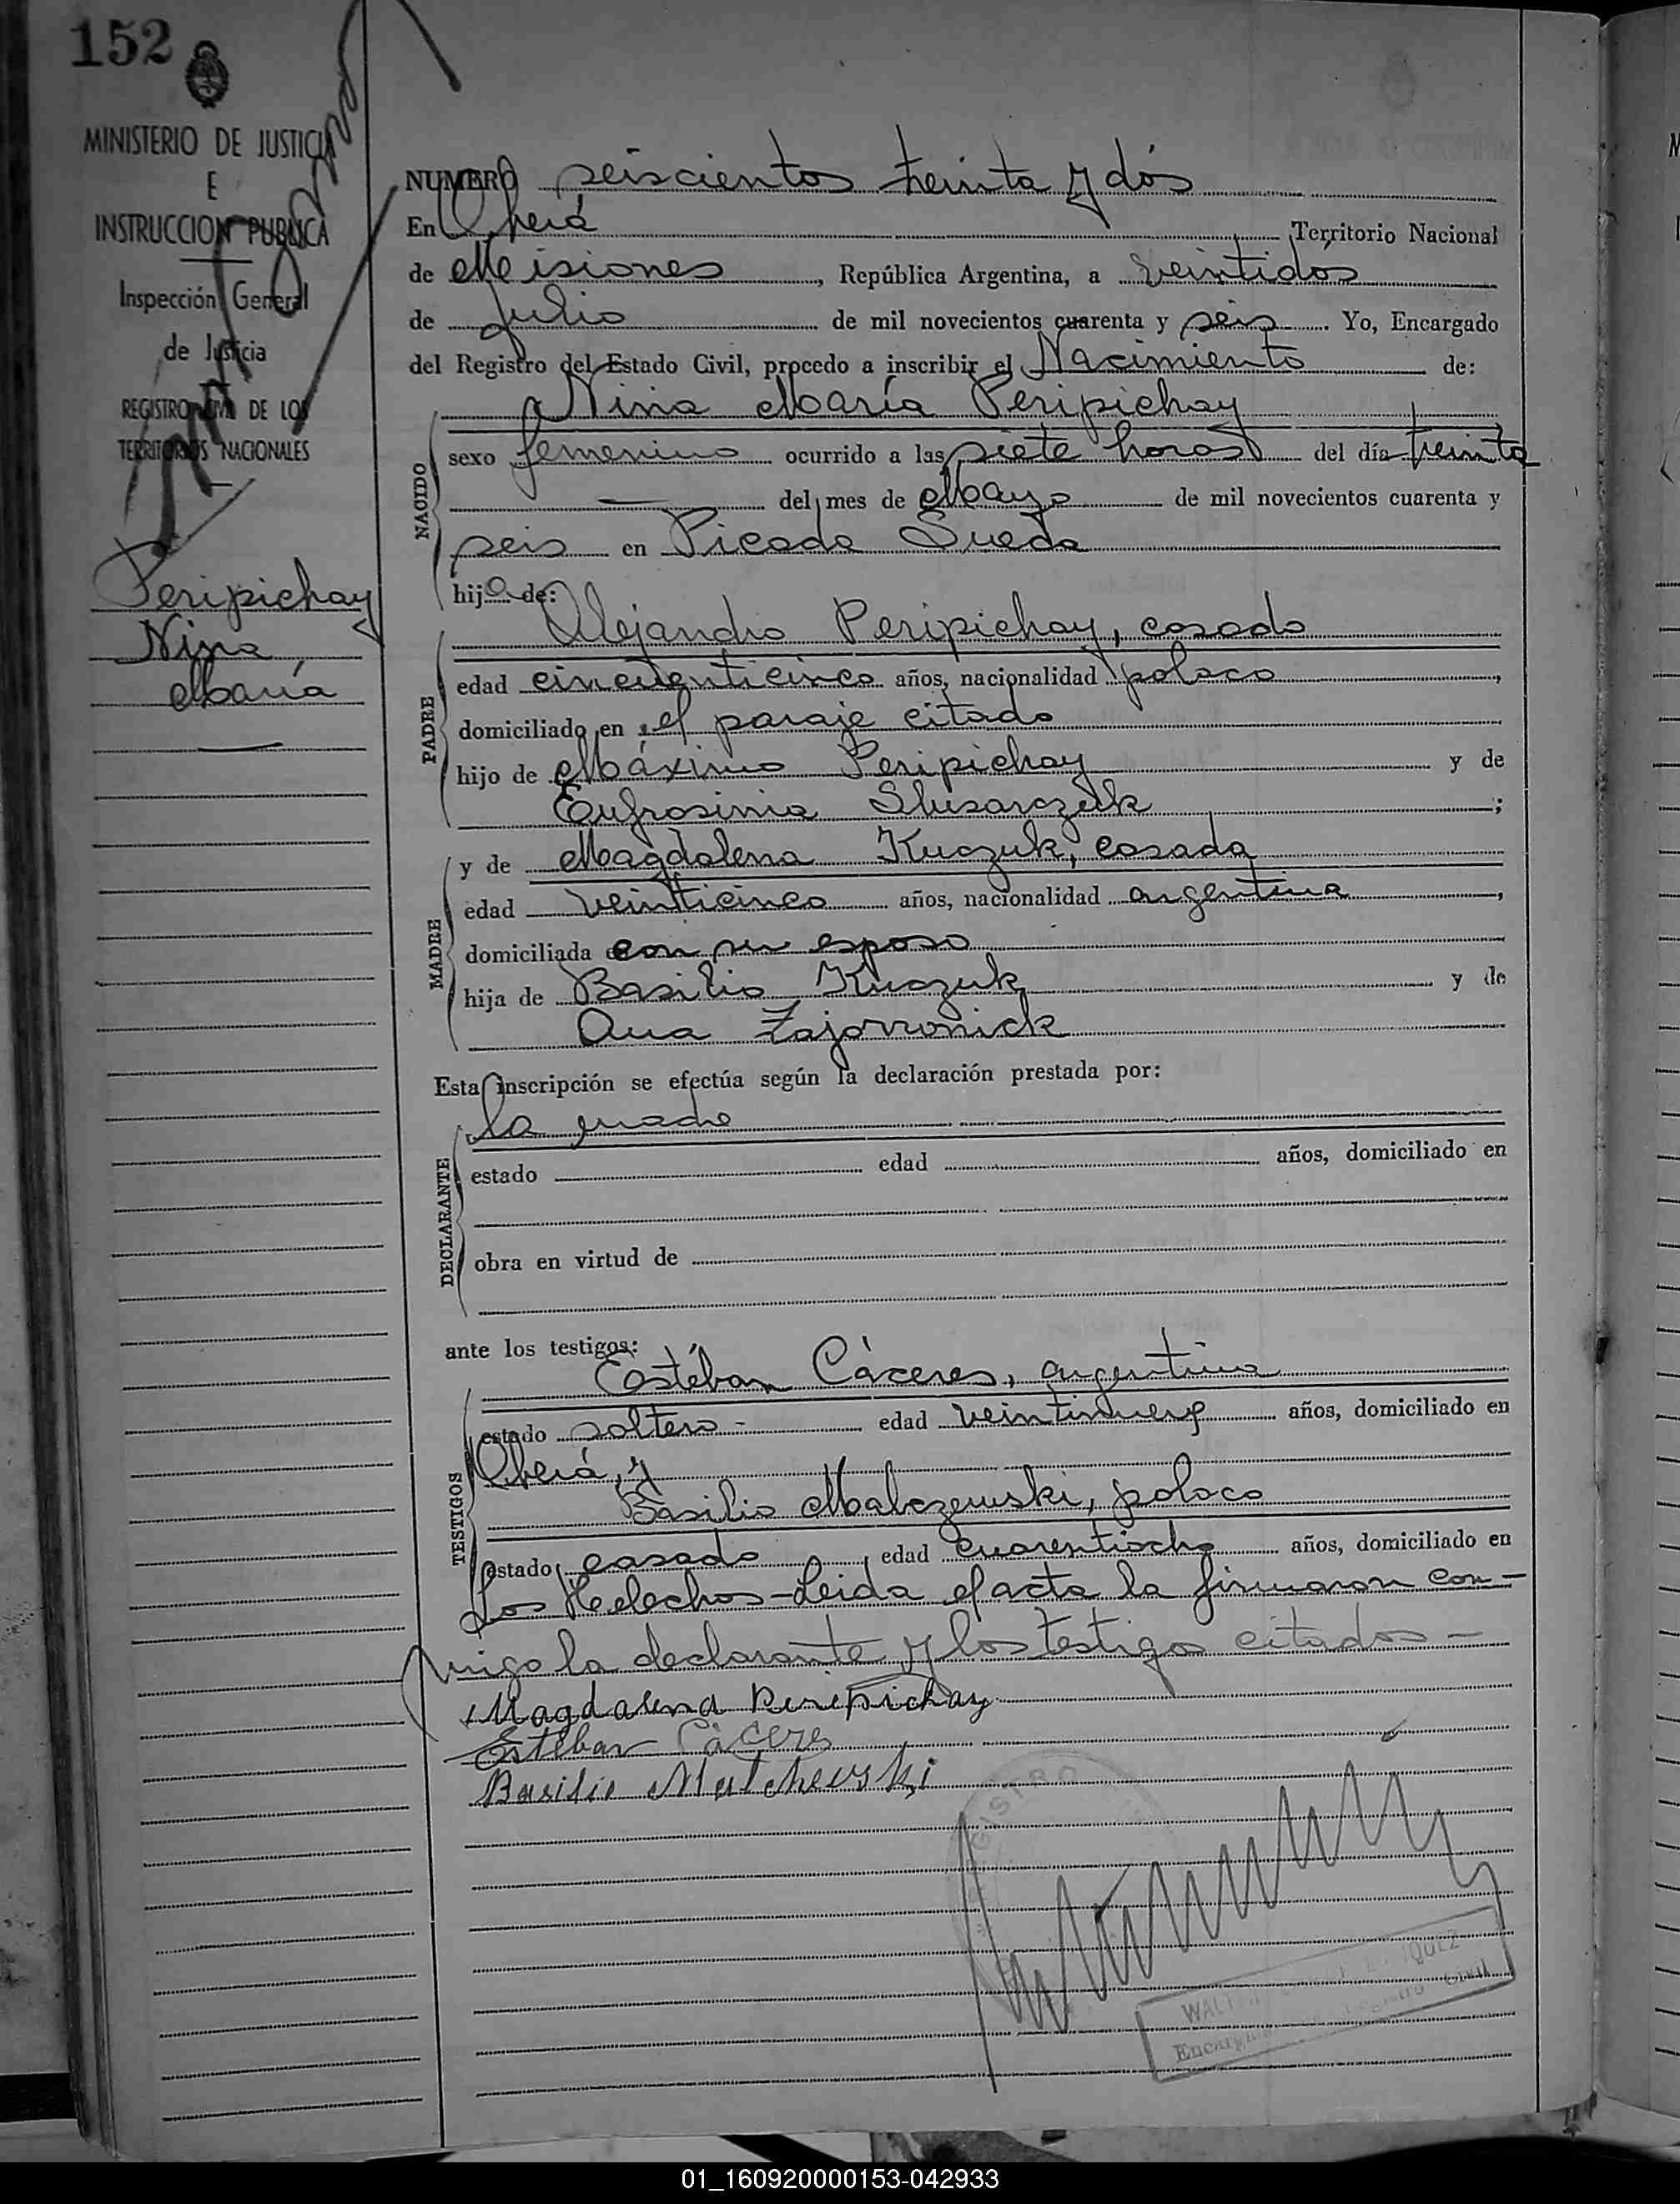 152
MINISTERIO DE JUSTICIA
E
INSTRUCCION PUBLICA
Inspección General
de Justicia
REGISTRO CIVIL DE LOS
TERRITORIOS NACIONALES
Peripichay
Nina
María
NUMERO seiscientos treinta y dós
En Oberá Territorio Nacional
de Misiones, República Argentina, a veintidos
de Julio de mil novecientos cuarenta y seis. Yo, Encargado
del Registro del Estado Civil, procedo a inscribir el Nacimiento de:
Nina María Peripichay
NACIDO
sexo femenino ocurrido a las siete horas del día treinta
— del mes de Mayo de mil novecientos cuarenta y
seis en Picada Sueda
hija de:
Alejandro Peripichay, casado
PADRE
edad cincuenticinco años, nacionalidad polaco,
domiciliado en el paraje citado
hijo de Máximo Peripichay y de
Eufrosinia Slusarczuk;
y de Magdalena Kuczuk, casada
MADRE
edad veinticinco años, nacionalidad argentina,
domiciliada con su esposo
hija de Basilio Kuczuk y de
Ana Zajorronick
Esta inscripción se efectúa según la declaración prestada por:
la madre
DECLARANTE
estado edad años, domiciliado en
obra en virtud de
ante los testigos:
Estéban Cáceres, argentino
TESTIGOS
estado soltero - edad veintinueve años, domiciliado en
Oberá, y
Basilio Malczewski, polaco
estado casado, edad cuarentiocho años, domiciliado en
Los Helechos - Leida el acta la firmaron con-
migo la declarante y los testigos citados -
Magdalena Peripichay
Estéban Cáceres
Basilio Malchewski
REGISTRO
WALT
Encarg Registro Civil
01_160920000153-042933